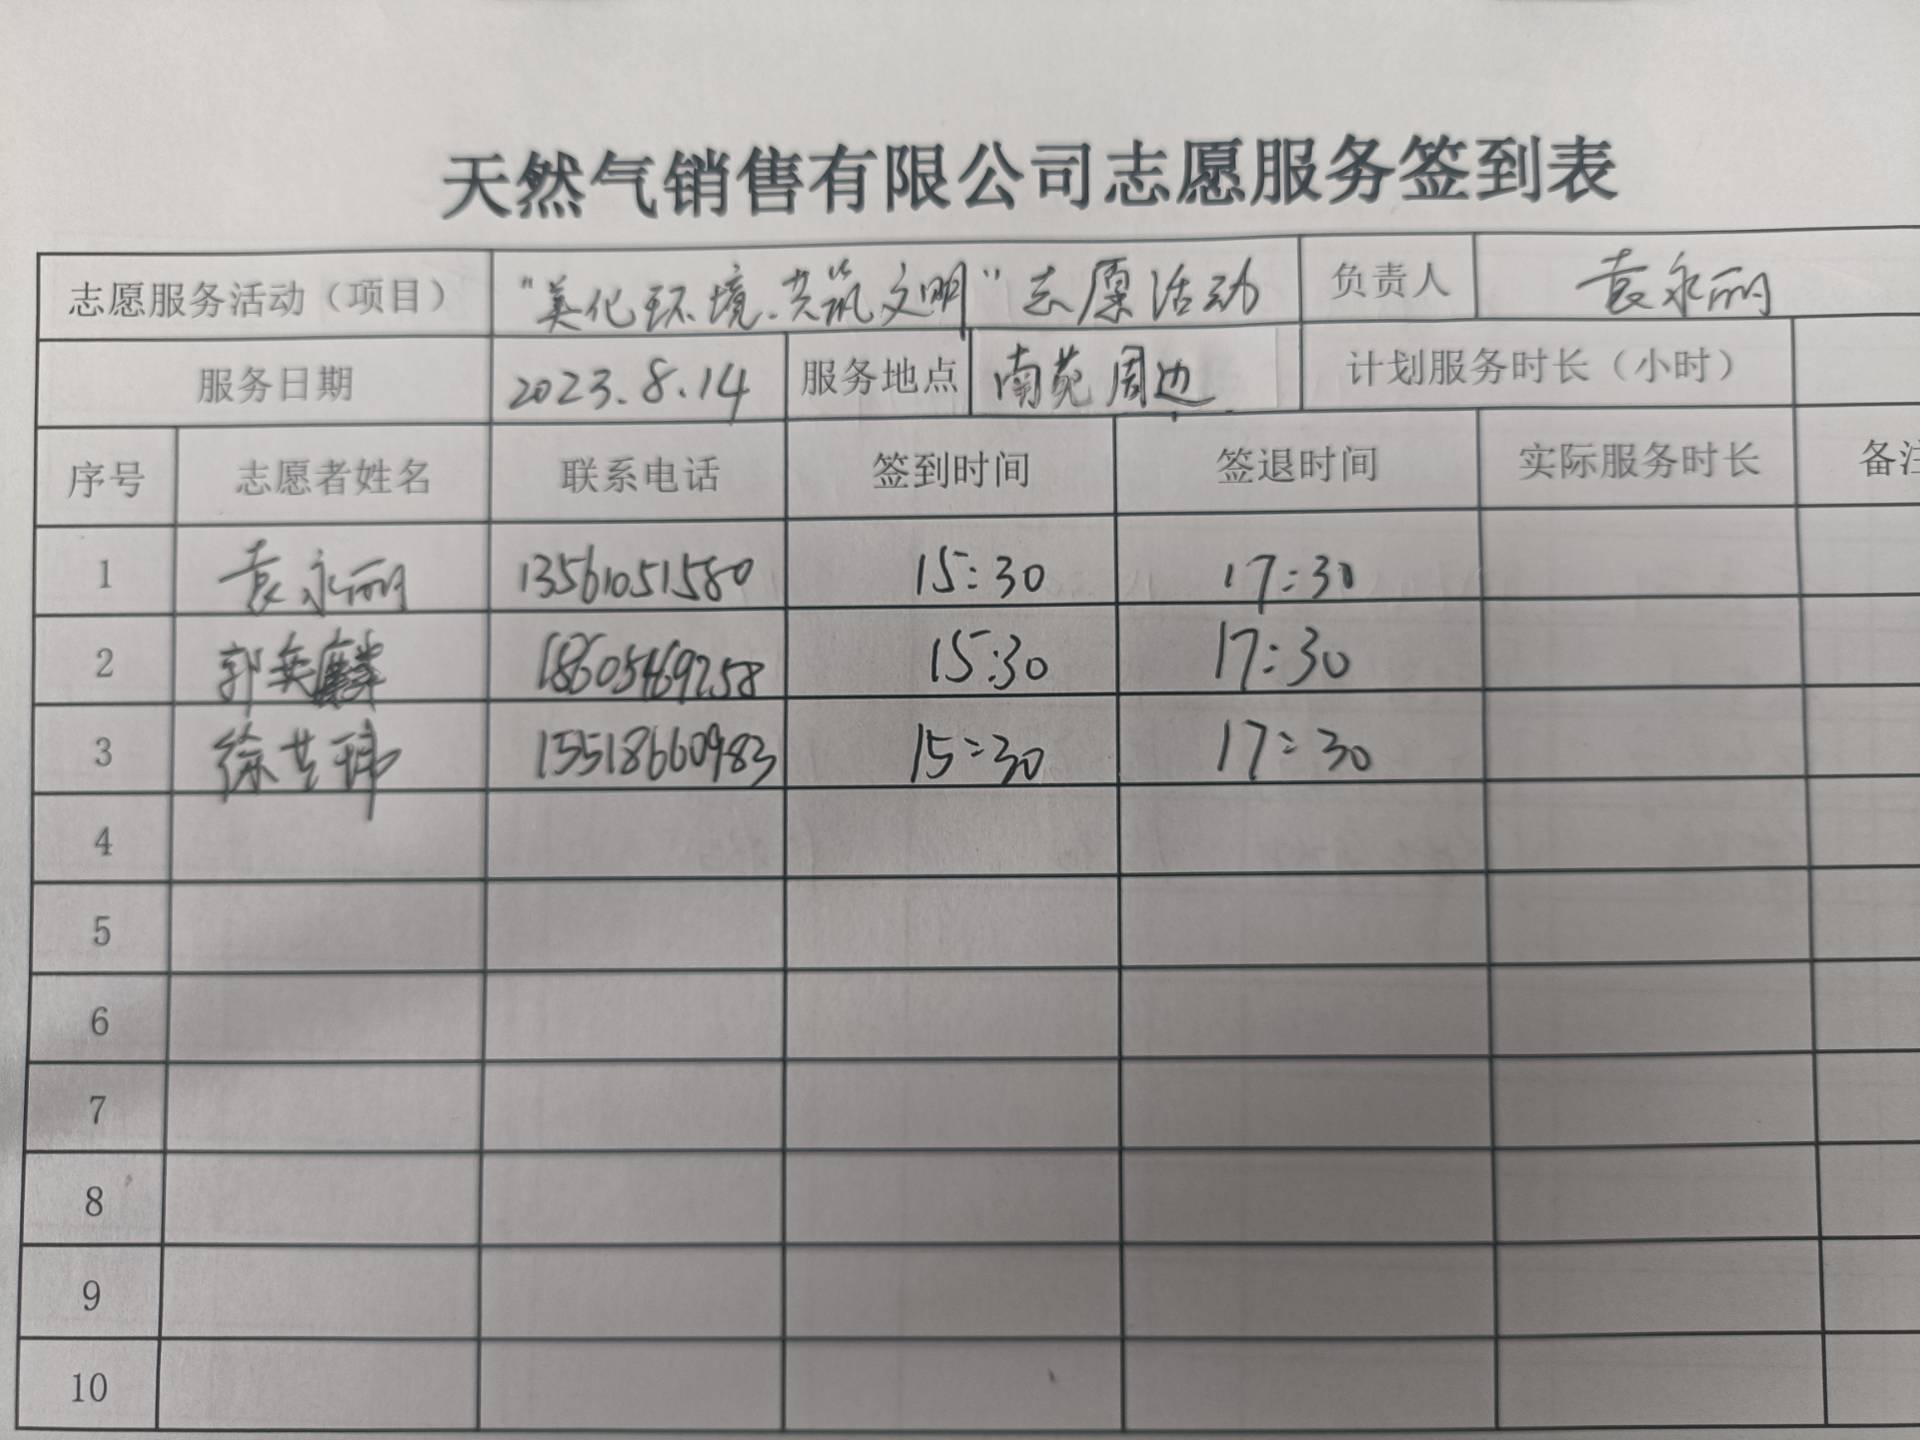 天然气销售有限公司志愿服务签到表
志愿服务活动（项目） “美化环境、共筑文明”志愿活动 负责人 袁永丽
服务日期 2023.8.14 服务地点 南苑周边 计划服务时长（小时）
序号 志愿者姓名 联系电话 签到时间 签退时间 实际服务时长 备注
1 袁永丽 13561051580 15:30 17:30
2 郭英麟 18605469258 15:30 17:30
3 徐芸玮 15518660983 15:30 17:30
4
5
6
7
8
9
10